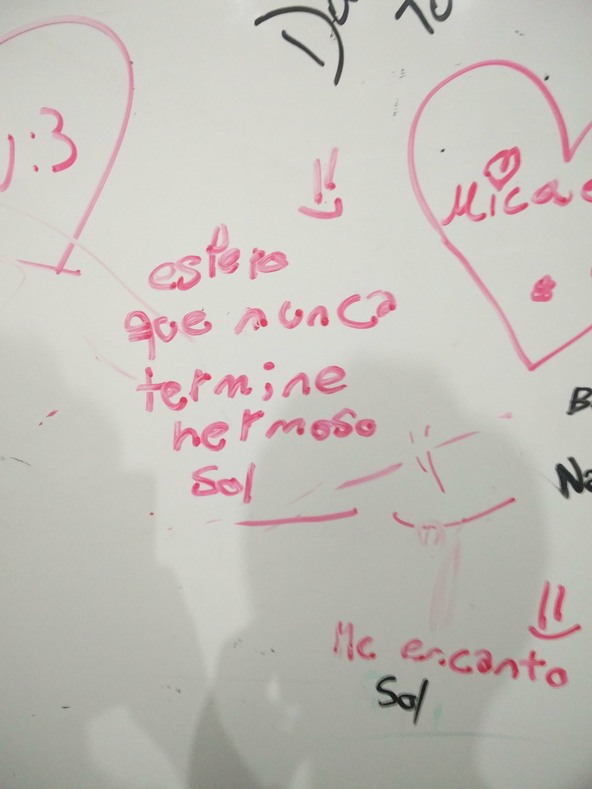 :3
espero
que nunca
termine
hermoso
Sol
Me encanto
Sol